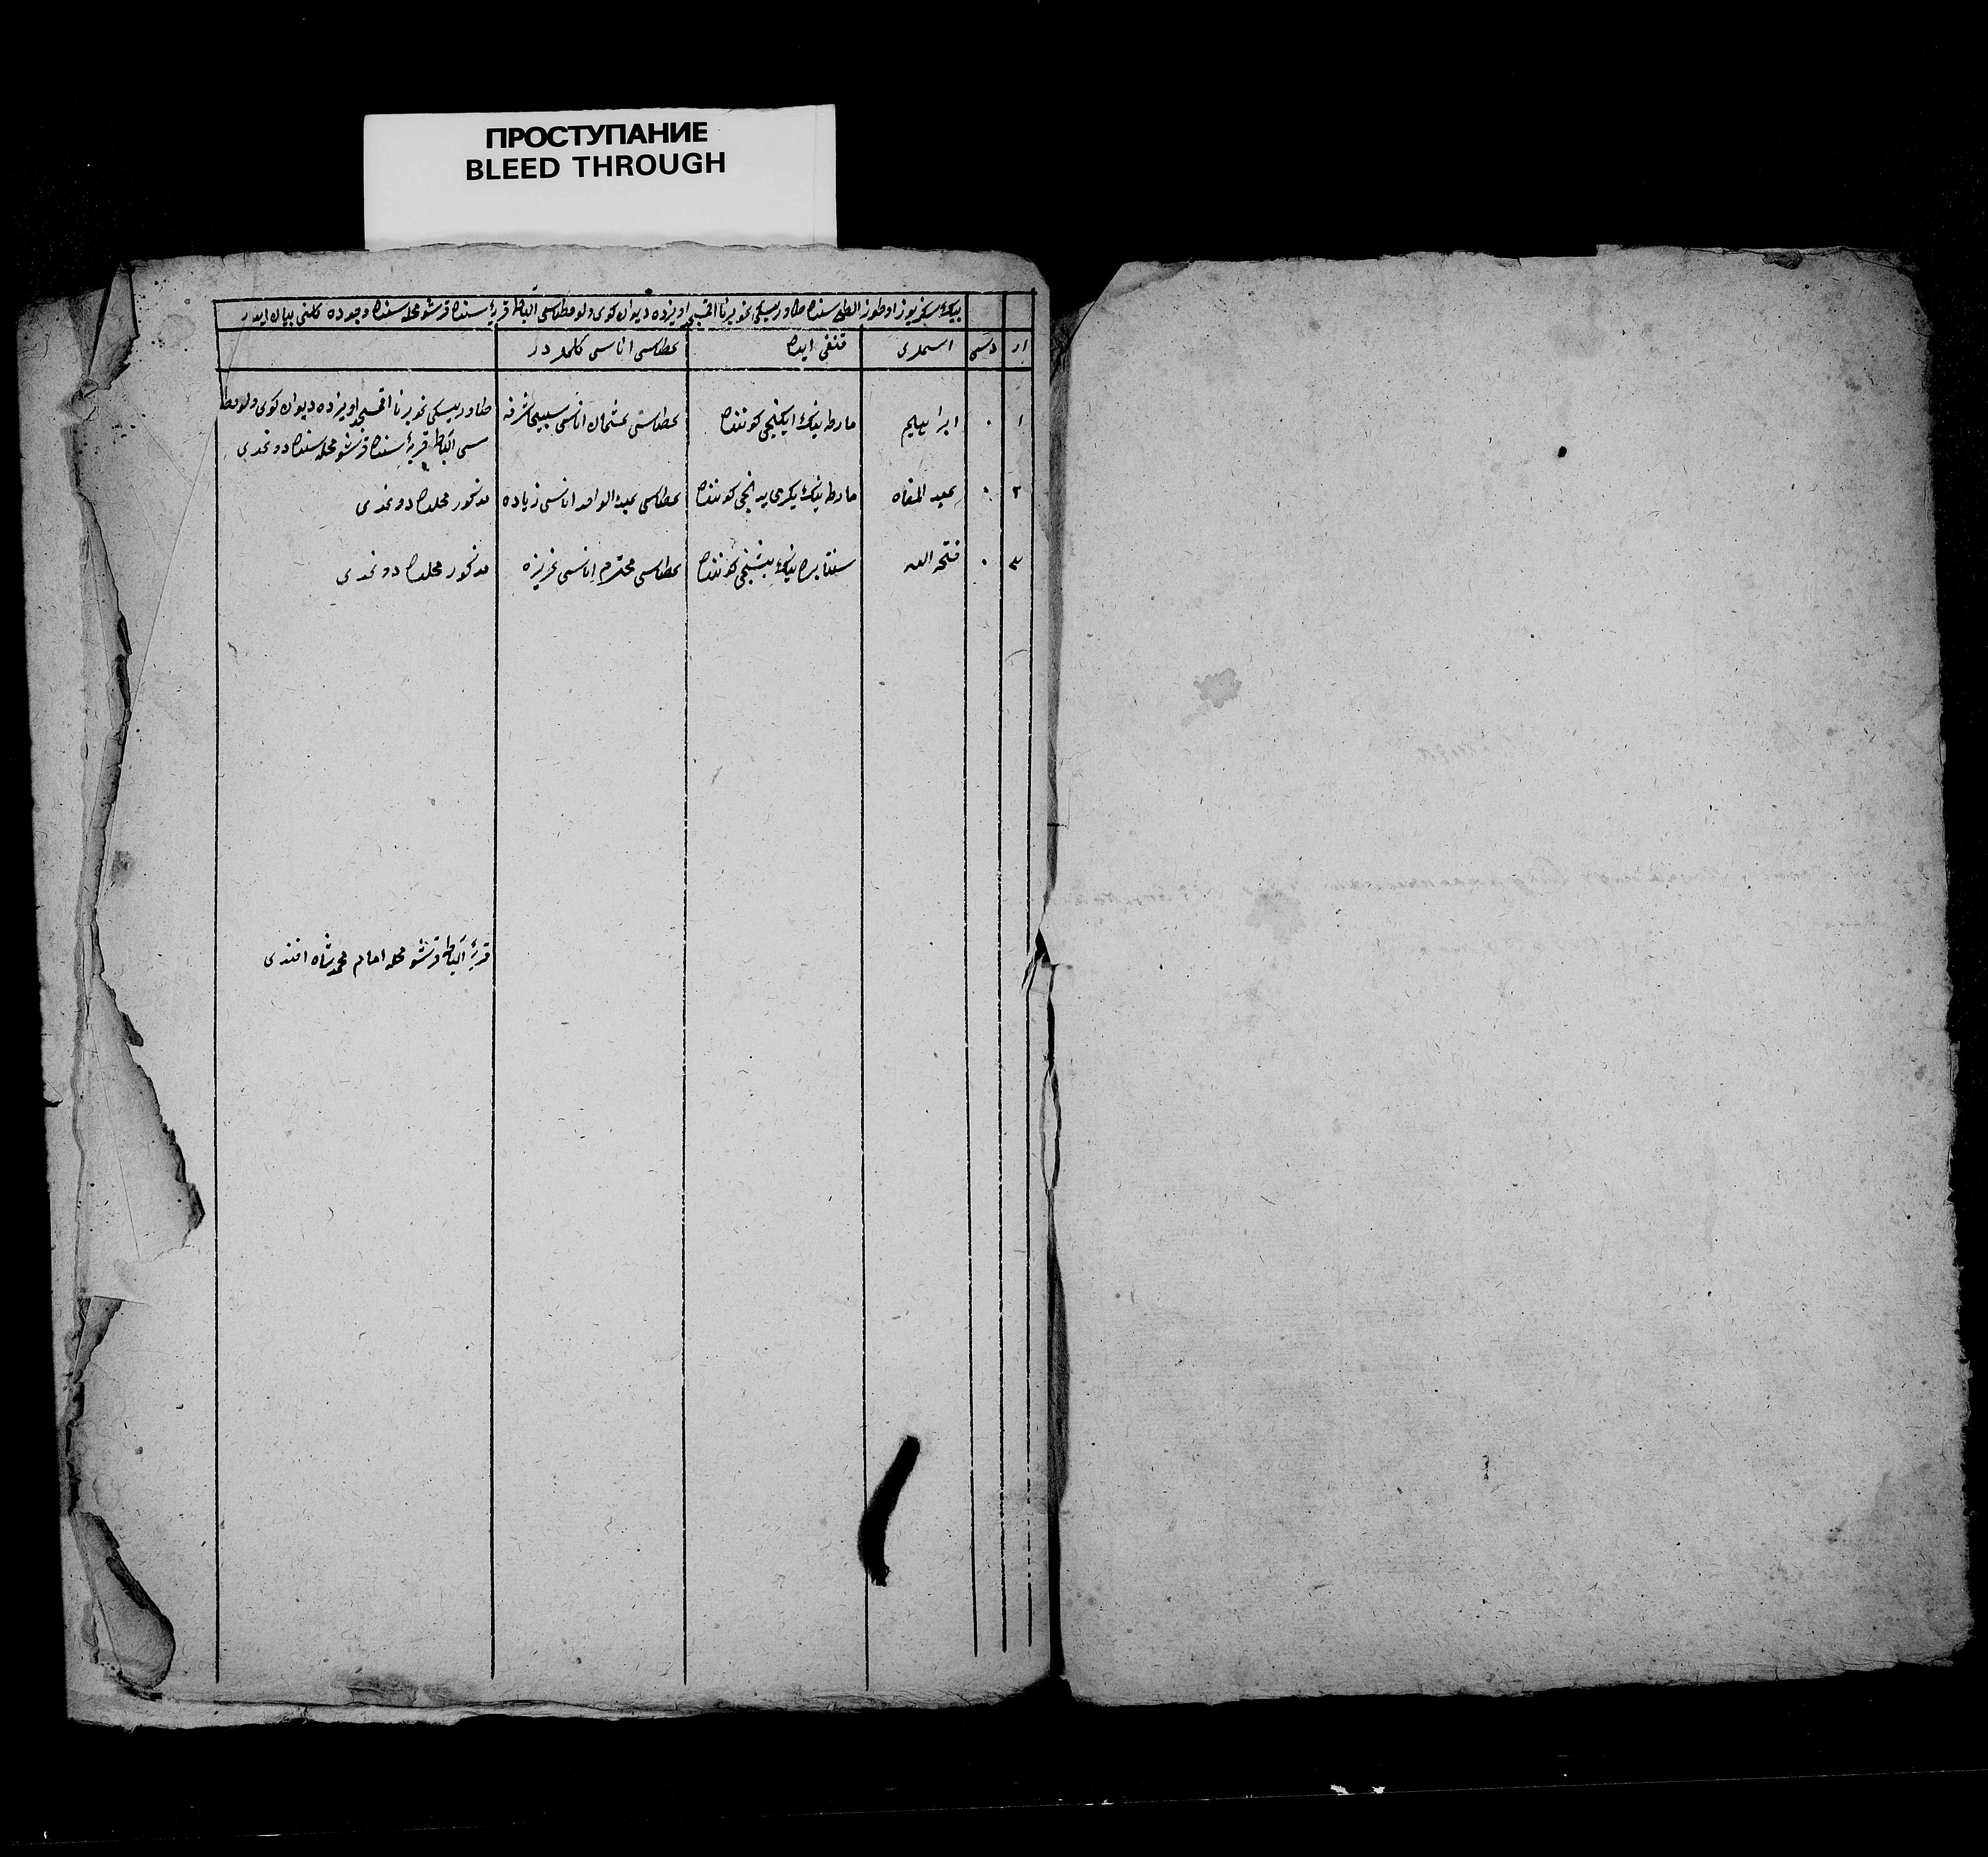 ПРОСТУПАНИЕ
BLEED THROUGH
بیڭ سکز یوز اوطوز الطی سنده طاوریسکی غوبرنا اقمسجد اویزده دیوان کوی ولوصطاسی الباط قریه سنده قرشو محله سنده وجوده کلنی بیان ایدر
ار دسی اسملری قنغی ایده عطاسی اناسی کلملر در
۱ ۰ ابراهیم مارط ینڭ ایکنجی کوننده عطاسی عثمان اناسی شرفه طاوریسکی غوبرنا اقمسجد اویزده دیوان کوی ولوصطا
سی الباط قریه سنده قرشو محله سنده دوغدی
۲ ۰ مارط ینڭ یکرمی کوننده عطاسی عبد الواحد اناسی زیاده مذکور محلده دوغدی
۳ ۰ فتح الله سنتابر ینڭ بشنجی کوننده عطاسی محترم اناسی عزیزه مذکور محلده دوغدی
قریه الباط قرشو محله امام محمدشاه افندی